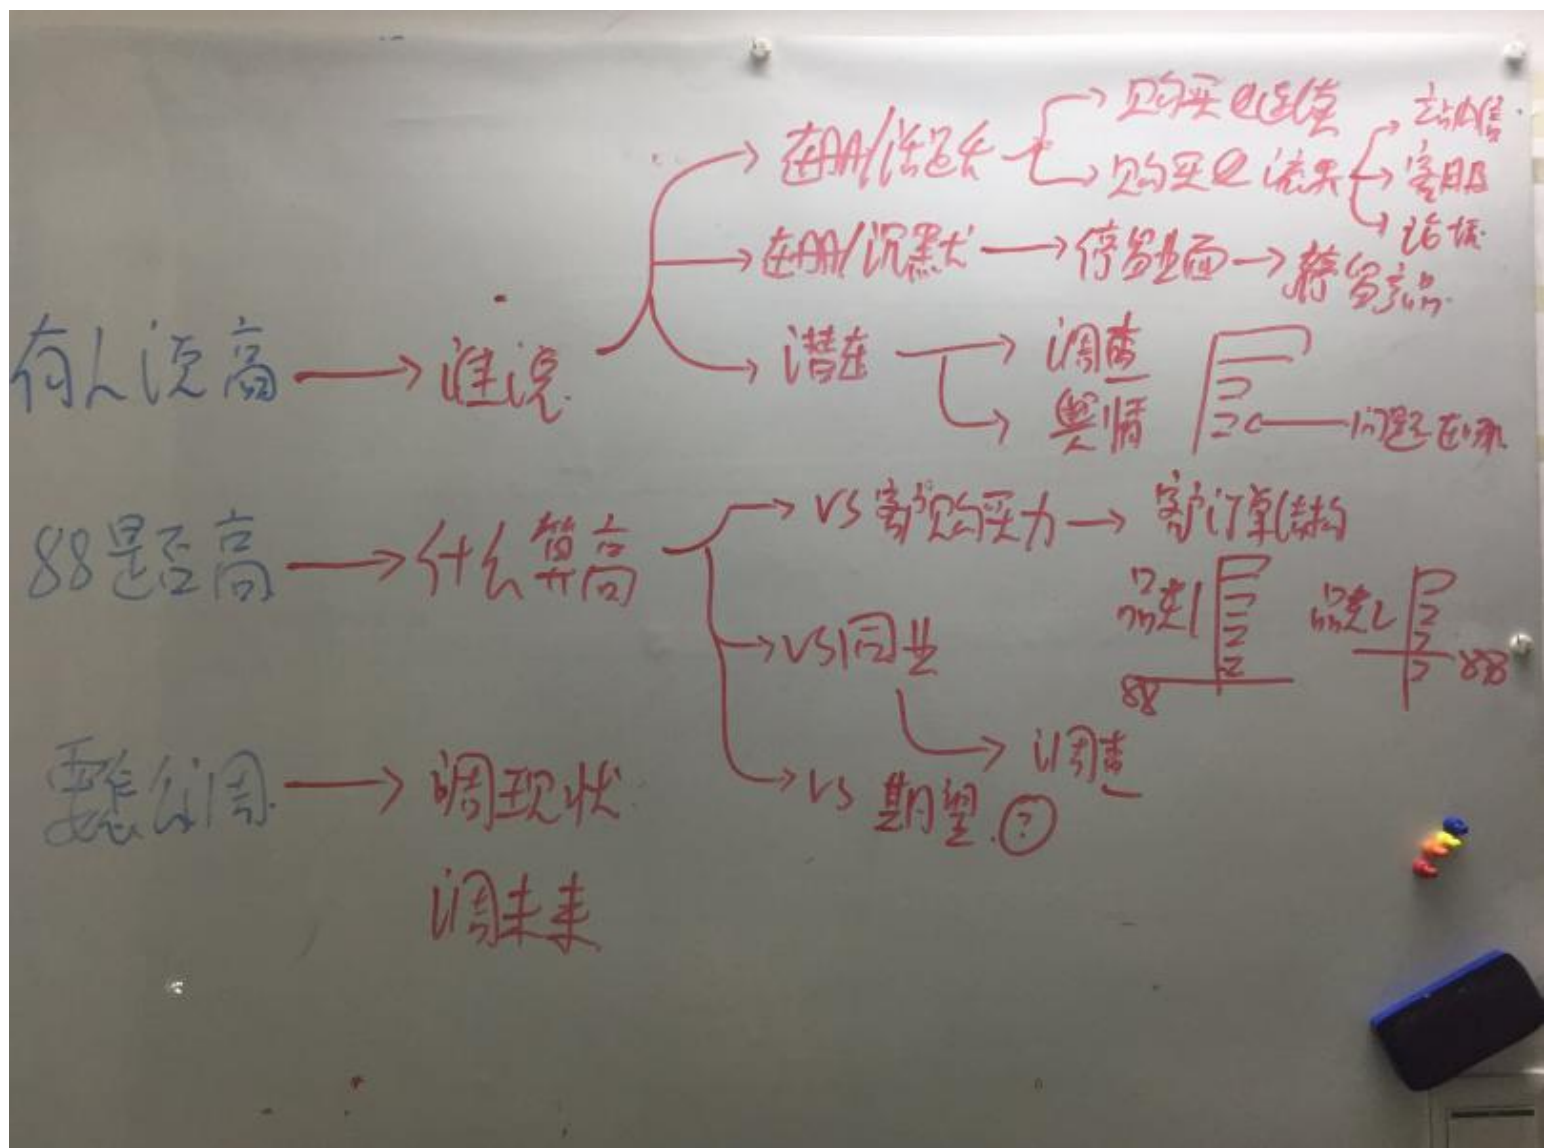 有人说高 → 谁说
在AA/活跃 → 购买也反馈
购买也流失 → 站内信
客服
论坛
在AA/沉默 → 停留页面 → 停留产品
潜在 → 调查
舆情
问题在哪
88是否高 → 什么算高
VS 客户购买力 → 客户订单结构
品类1
88
品类2
88
VS同业
调查
VS 期望 ?
要怎么调 → 调现状
调未来